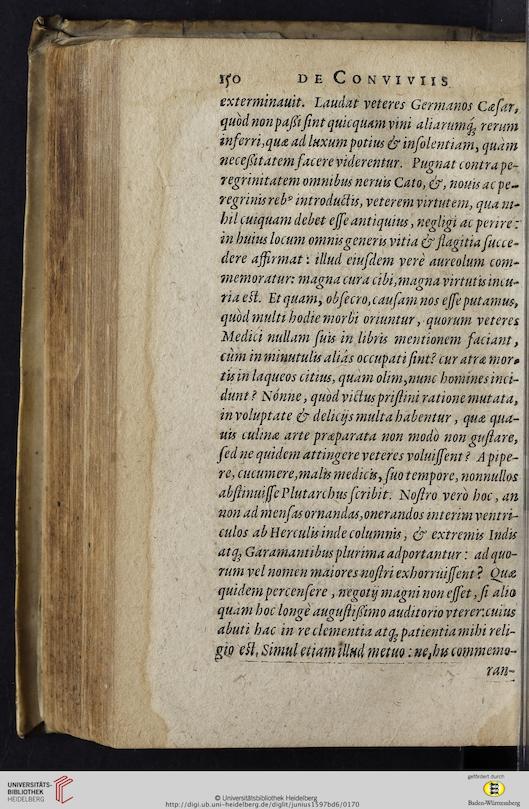 150 DE CONVIVIIS
exterminauit. Laudat veteres Germanos Cæſar,
quòd non paßi ſint quicquam vini aliarumq́ꝫ rerum
inferri, quæ ad luxum potius & inſolentiam, quàm
neceßitatem facere viderentur. Pugnat contra pe-
regrinitatem omnibus neruis Cato, &, nouis ac pe-
regrinis rebꝰ introductis, veterem virtutem, qua ni-
hil cuiquam debet eſſe antiquius, negligi ac perire:
in huius locum omnis generis vitia & flagitia ſucce-
dere affirmat: illud eiuſdem verè aureolum com-
memoratur: magna cura cibi, magna virtutis incu-
ria est. Et quam, obſecro, cauſam nos eſſe putamus,
quòd multi hodie morbi oriuntur, quorum veteres
Medici nullam ſuis in libris mentionem faciant,
cùm in minutulis aliàs occupati ſint? cur atræ mor-
tis in laqueos citius, quàm olim, nunc homines inci-
dunt? Nónne, quòd victus priſtini ratione mutata,
in voluptate & delicijs multa habentur, quæ qua-
uis culinæ arte præparata non modò non guſtare,
ſed ne quidem attingere veteres voluiſſent? A pipe-
re, cucumere, malis medicis, ſuo tempore, nonnullos
abſtinuiſſe Plutarchus ſcribit. Noſtro verò hoc, an
non ad menſas ornandas, onerandos interim ventri-
culos ab Herculis inde columnis, & extremis Indis
atqꝫ Garamantibus plurima adportantur: ad quo-
rum vel nomen maiores noſtri exhorruiſſent? Quæ
quidem percenſere, negotij magni non eſſet, ſi alio
quàm hoc longè auguſtißimo auditorio vterer: cuius
abuti hac in re clementia atqꝫ patientia mihi reli-
gio est. Simul etiam illud metuo: ne, his commemo-
ran-
UNIVERSITÄTS-
BIBLIOTHEK
HEIDELBERG
© Universitätsbibliothek Heidelberg
http://digi.ub.uni-heidelberg.de/diglit/junius1597bd6/0170
gefördert durch
Baden-Württemberg